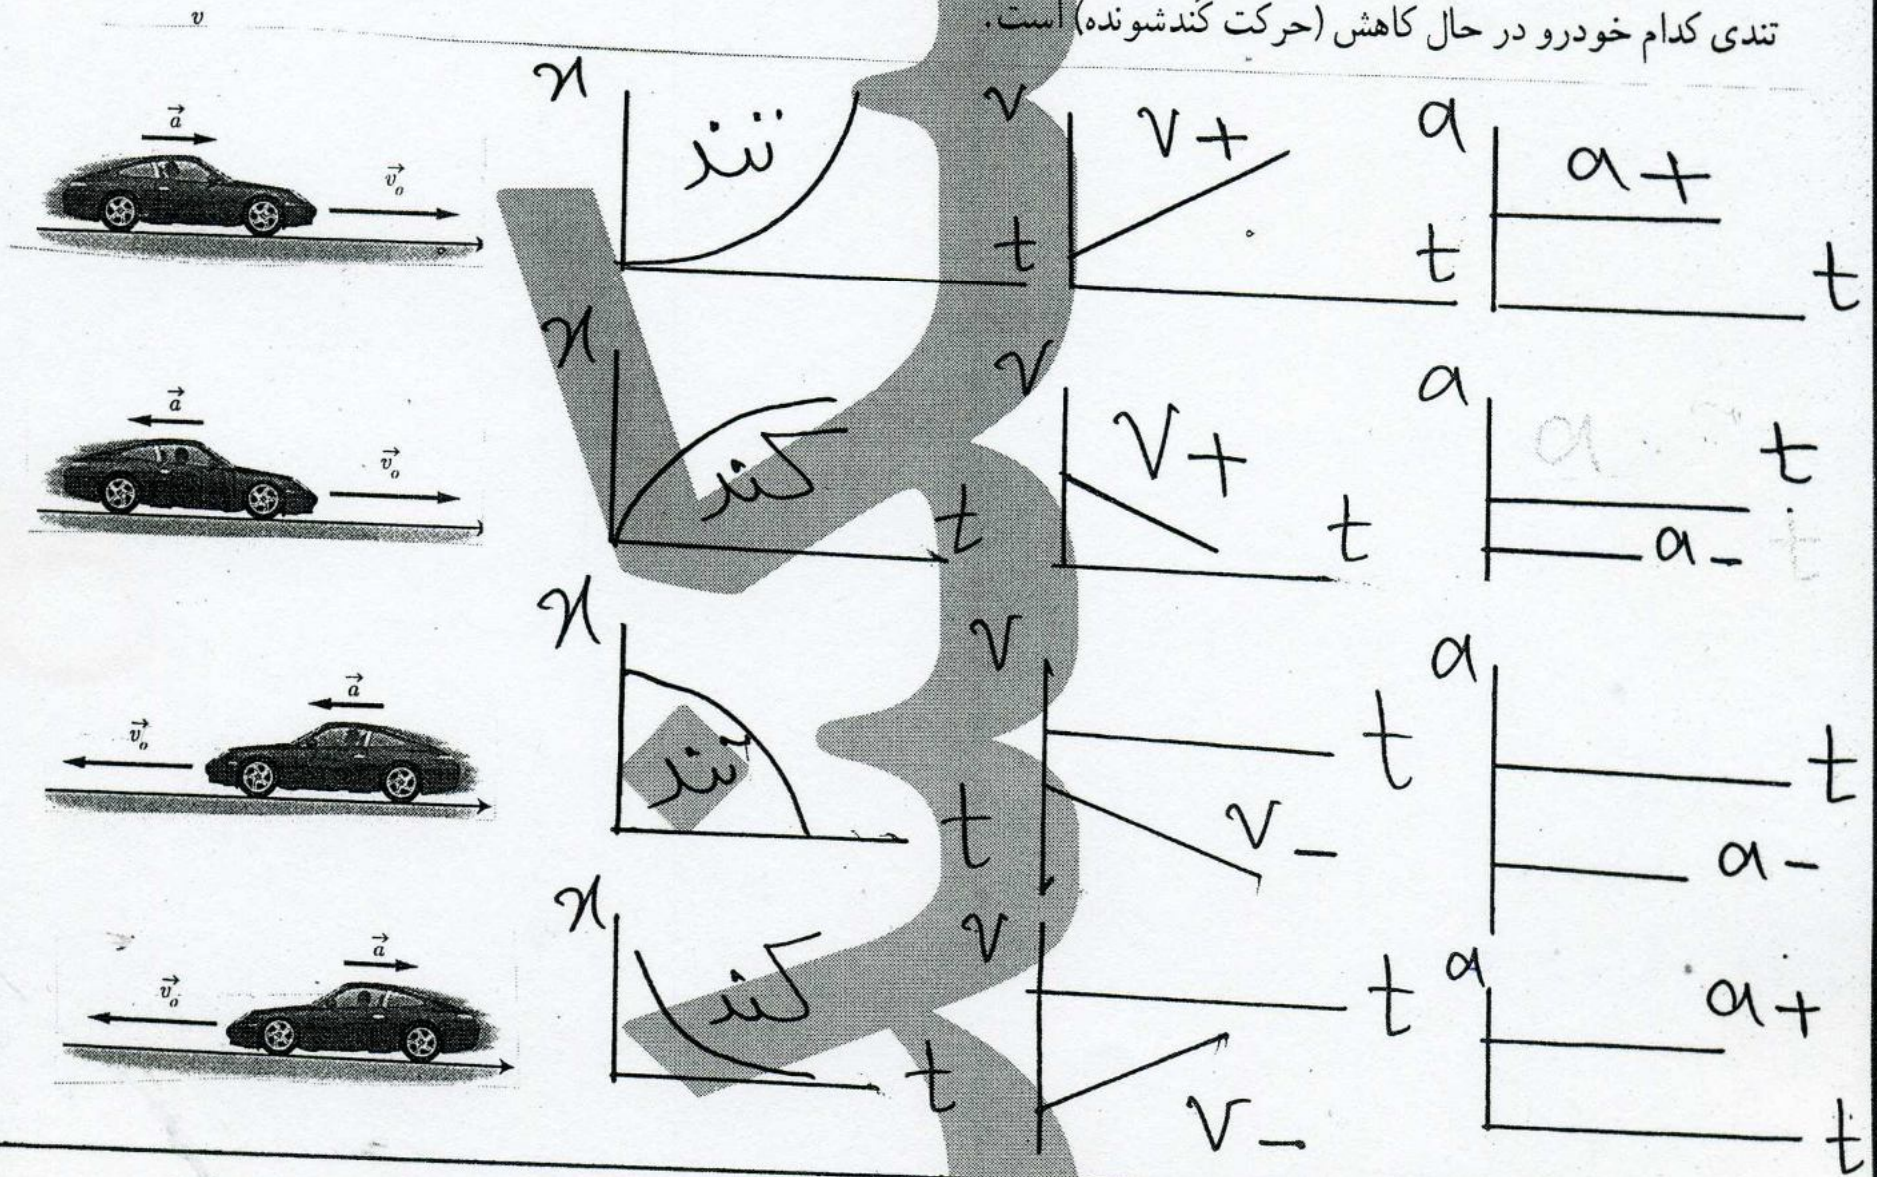 v
تندی کدام خودرو در حال کاهش (حرکت کُندشونده) است.
a⃗
v⃗₀
x
تند
t
v
V+
t
a
a+
t
a⃗
v⃗₀
x
کند
t
V
V+
t
a
a
t
a-
t
a⃗
v⃗₀
x
تند
t
V
t
V-
a
t
a-
a⃗
v⃗₀
x
کند
t
V
t
V-
a
a+
t